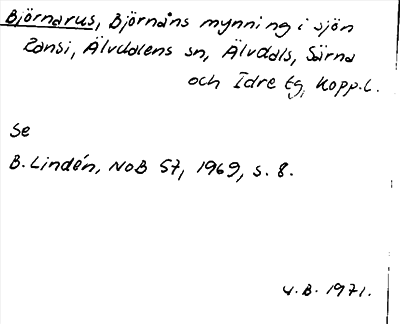 Björnarus, Björnåns mynning i sjön
Zansi, Älvdalens sn, Älvdals, Särna
och Idre tg, Kopp.l.
Se
B. Lindén, NoB 57, 1969, s. 8.
V.B. 1971.